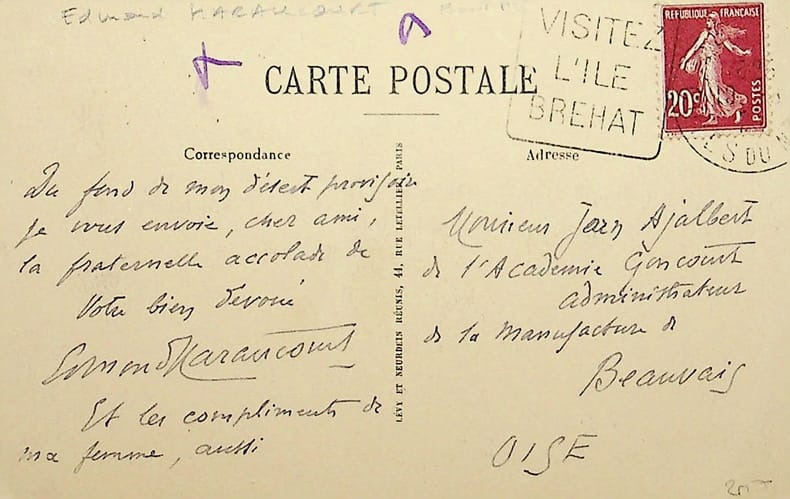 Edmond HARAUCOURT
CARTE POSTALE
VISITEZ
L'ILE
BREHAT
REPUBLIQUE FRANÇAISE
20c
POSTES
S DU N
Correspondance
Du fond de mon désert provisoire
je vous envoie, cher ami,
la fraternelle accolade de
Votre bien dévoué
Edmond Haraucourt
Et les compliments de
ma femme, aussi
LÉVY ET NEURDEIN RÉUNIS, 44, RUE LETELLIER, PARIS
Adresse
Monsieur Jean Ajalbert
de l'Académie Goncourt
administrateur
de la Manufacture de
Beauvais
OISE